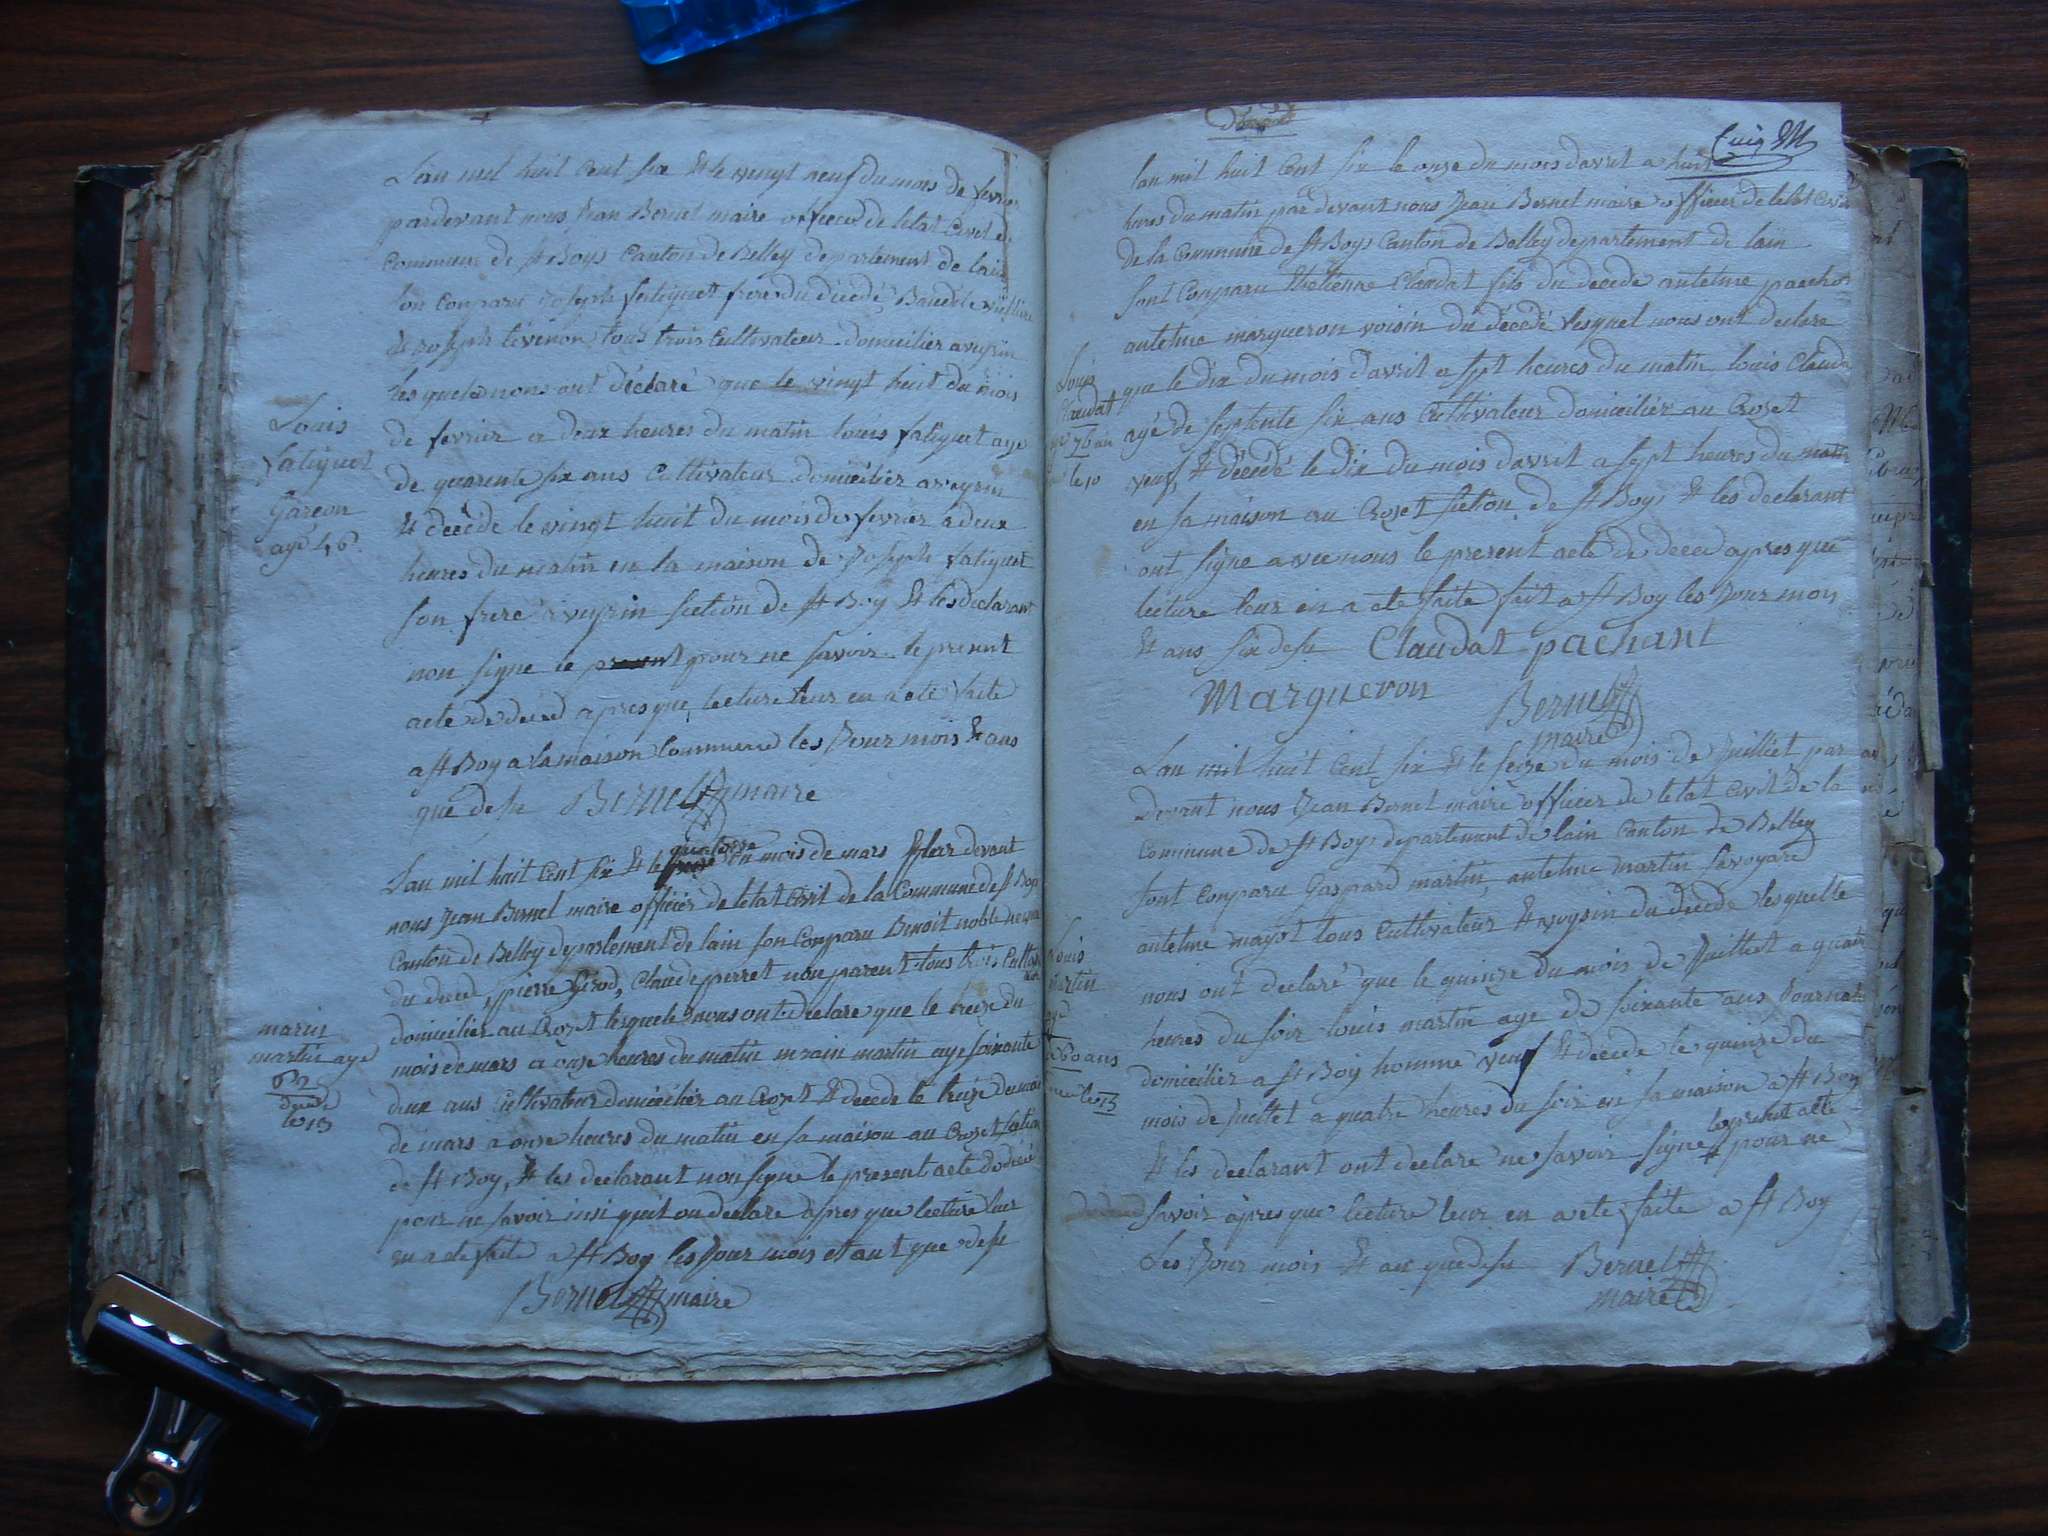 Lan mil huit Cent six & le vingt neuf du mois de fevrier
pardevant nous Jean Bernel maire officié de letat Civil de
Commune de St Boys Canton de Belley departement de lain
son Conparu Joseph fatiguet frere du décédé
& Joseph tévenon tous trois Cultivateur domicilier a vyrin
les quels nous ont déclaré que le vingt huit du mois
de fevrier a deux heures du matin louis fatiguet aye
de quarente six ans Cultivateur domicilier a veyrin
& décéde le vingt huit du mois de fevrier a deux
heures du matin en la maison de Joseph fatiguet
son frere a vyrin section de St Boy & les declarant
non signe ce present pour ne savoir le present
acte de deced apres que lecture leur en a eté faite
a St Boy a la maison Commune les Jour mois & ans
que desu Bernel maire
Louis
fatiguet
Garcon
ayé 46
Lan mil huit Cent six & le quatorze du mois de mars devant
nous Jean Bernel maire officier de letat Civil de la Commune de St Boy
Canton de Belley departement de lain son Conparu Benoit noble neveu
du deced, pierre Girod, Claude perret non parent tous trois
domicilier au Crozet lesquels nous ont declare que le treize du
mois de mars a onze heures du matin marin martin aye soixante
deux ans Cultivateur domicilier au Crozet & decede le treize du mois
de mars a onze heures du matin en sa maison au Crozet section
de St Boy, & les declarant non signe le present acte de décé
pour ne savoir insi quil on declare apres que lecture leur
en a ete faite a St Boy les Jour mois et ant que desu
Bernel maire
marin
martin aye
62
decede
le 13
lan mil huit Cent six le onze du mois davril a huit
hures du matin par devant nous Jean Bernel maire officier de letat Civil
de la Commune de St Boys Canton de Belley departement de lain
sont Conparu Ethetienne Claudat fils du decede antelme
antelme margueron voisin du décedé lesquel nous ont declare
que le dix du mois davril a sept heures du matin louis Claudat
ayé de septente six ans Cultivateur domicilier au Crozet
veuf, & décédé le dix du mois davril a sept heures du matin
en sa maison au Crozet section de St Boy, & les declarant
ont signe avec nous le present acte de deced apres que
lecture leur en a ete faite fait a St Boy les Jour mois
& ans six desu Claudat pachant
Margueron Bernel
maire
Louis
Claudat
76 an
le 10
Lan mil huit Cent six & le seize du mois de Juilliet par
devant nous Jean Bernel maire officier de letat Civil de la
Commune de St Boys departement de lain Canton de Belley
sont Conparu Gaspard martin, antelme martin savoyard
antelme mayot tous Cultivateur & voysin du decede lesquelle
nous ont declaré que le quinze du mois de Juillet a quatre
heures du soir louis martin aye de soixante ans Journalier
domicilier a St Boy homme veuf & décéde le quinze du
mois de Juillet a quatre heures du soir en sa maison a St Boy
& les declarant ont declare ne savoir signe le present acte pour ne
savoir apres que lecture leur en a ete faite a St Boy
Les Jour mois & an que desu Bernel
maire
Louis
Martin
60 ans